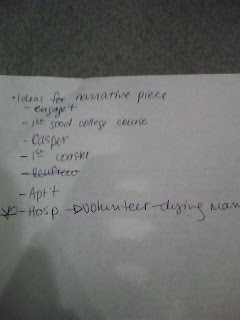 • Ideas for narrative piece
- engage't
- 1st good college course
- Casper
- 1st coaster
- Renfrew
- Apt't
- Hosp - Volunteer - dying man